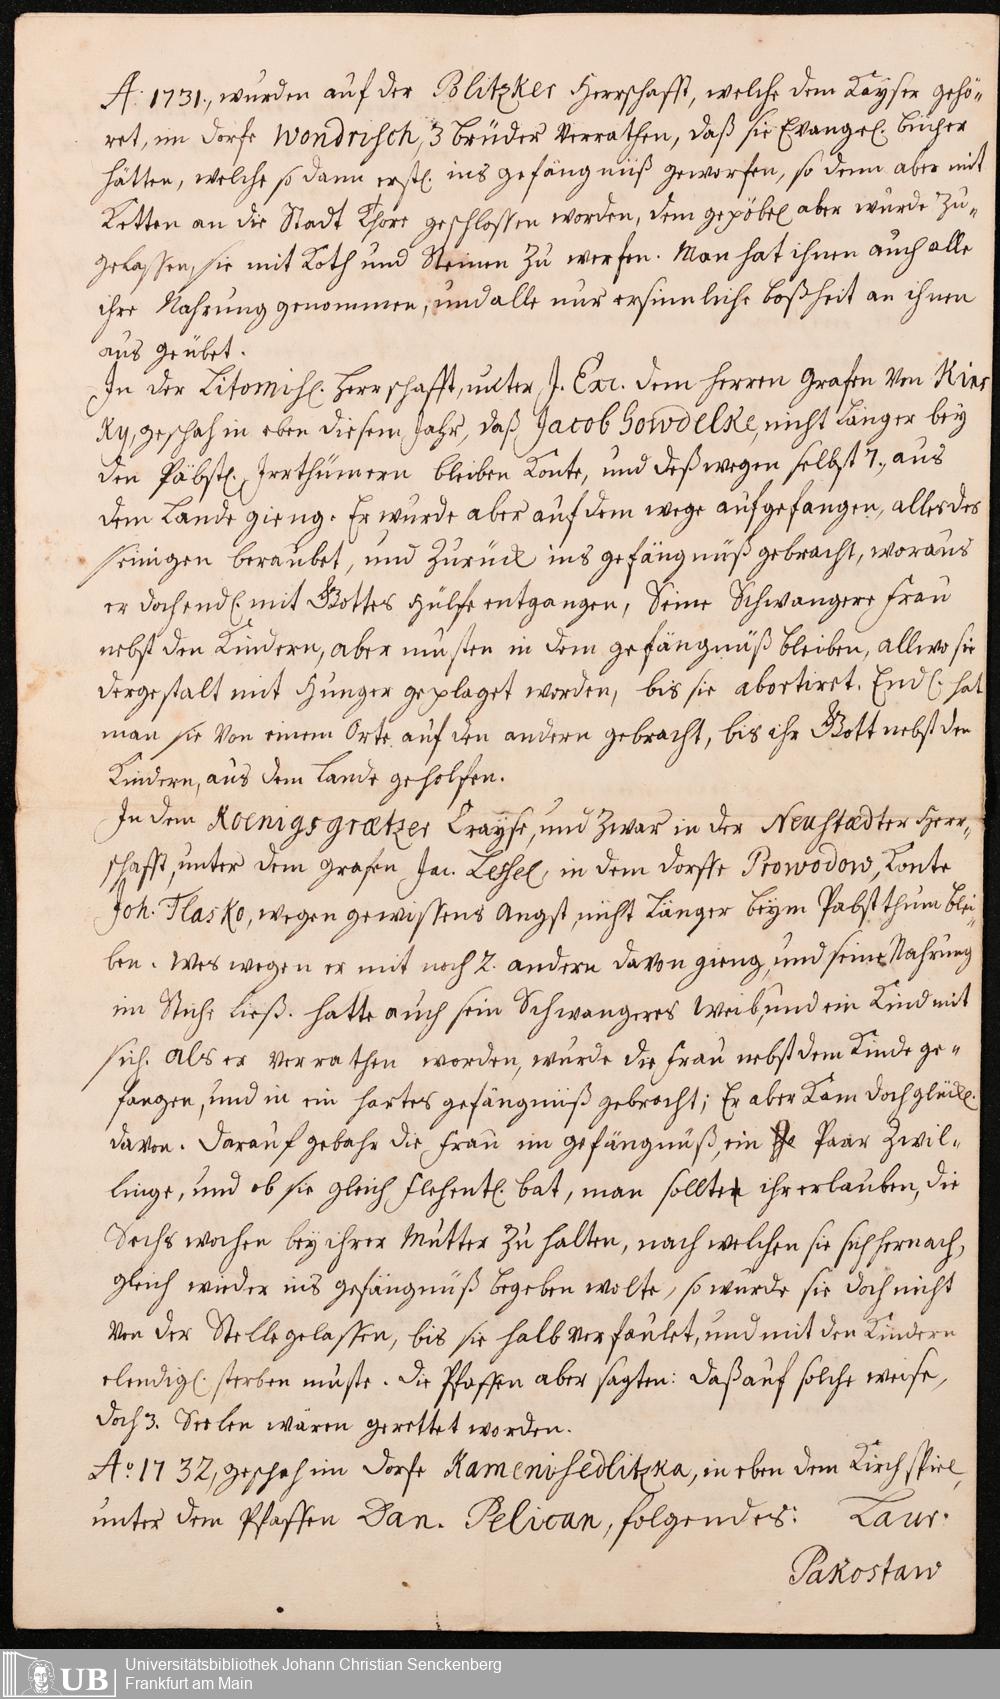 A: 1731., wurden auf der Blitzker Herrschafft, welche dem Kayser gehö-
ret, im dorfe Wondrisch, 3 brüder verrathen, daß sie Evangel. bücher
hätten, welche so dann erstl. ins gefängnüß geworfen, so denn aber mit
Ketten an die Stadt Thore geschlossen worden, dem gepöbel aber wurde zu-
gelassen, sie mit Koth und Steinen zu werfen. Man hat ihnen auch alle
ihre Nahrung genommen, und alle nur ersinnliche boßheit an ihnen
aus geübet.
In der Litomisl. Herrschafft, unter J. Exc. dem Herren Grafen von Kins
Ky, geschah in eben diesem Jahr, daß Jacob Gowdelke, nicht länger bey
den Päbstl. Irrthümern bleiben Konte, und deßwegen selbst 7., aus
dem Lande gieng. Er wurde aber auf dem wege aufgefangen, alles des
seinigen beraubet, und zurück ins gefängnüß gebracht, woraus
er doch endl. mit Gottes Hülfe entgangen, Seine Schwangere Frau
nebst den Kindern, aber musten in dem gefängnüß bleiben, allwo sie
dergestalt mit Hunger geplaget worden, bis sie abortiret. Endl. hat
man sie von einem Orte auf den andern gebracht, bis ihr Gott nebst den
Kindern, aus dem Lande geholfen.
In dem Koenigsgrætzer Crayse, und zwar in der Neustædter Herr-
schafft, unter dem grafen Jac. Leshel, in dem dorffe Prowodow, Konte
Joh. Flasko, wegen gewissens Angst, nicht länger beym Pabstthum blei-
ben. Weswegen er mit noch 2. andern davon gieng, und seine Nahrung
im Stiche ließ. hatte auch sein Schwangeres Weib, und ein Kind mit
sich. Als er verrathen worden, wurde die Frau nebst dem Kinde ge-
fangen, und in ein hartes gefängnüß gebracht; Er aber Kam doch glückl.
davon. Darauf gebahr die Frau im gefängnüß, ein Paar Zwil-
linge, und ob sie gleich flehentl. bat, man sollte ihr erlauben, die
Sechs wochen bey ihrer Mutter zu halten, nach welchen sie sich hernach,
gleich wieder ins gefängnüß begeben wolte, so wurde sie doch nicht
von der Stelle gelassen, bis sie halb verfaulet, und mit den Kindern
elendigl. sterben muste. Die Pfaffen aber sagten: daß auf solche weise,
doch 3. Seelen wären gerettet worden.
Ao. 1732, geschah im dorfe Kamenisedlitzka, in eben dem Kirchspiel,
unter dem Pfaffen Dan. Pelican, folgendes: Laur.
Pakostaw
UB
Universitätsbibliothek Johann Christian Senckenberg
Frankfurt am Main